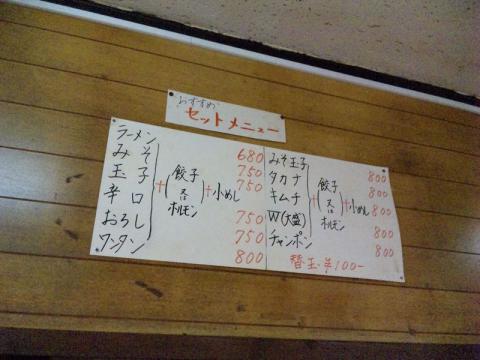 おすすめ
セットメニュー
ラーメン 680
みそ 750
玉子 750
辛口
おろし 750
ワンタン 750
800
+(餃子 又は ホルモン)+小めし
みそ玉子 800
タカナ 800
キムチ 800
W(大盛) 800
チャンポン 800
+(餃子 又は ホルモン)+小めし
替玉・¥100-